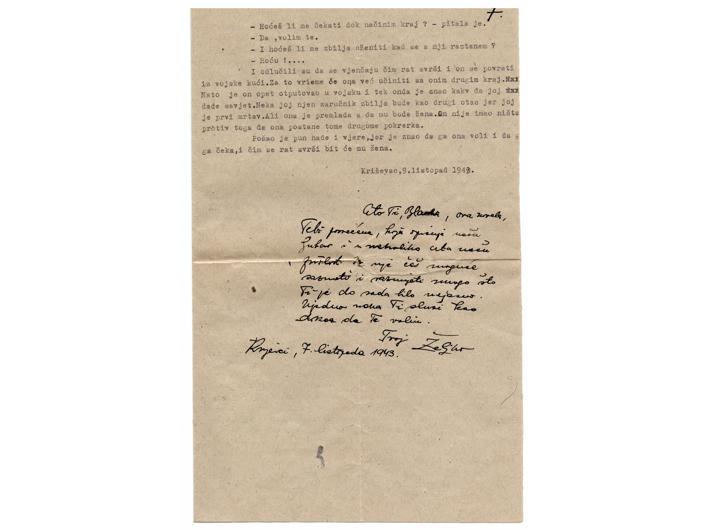 - Hoćeš li me čekati dok načinim kraj ? - pitala je.
- Da ,volim te.
- I hoćeš li me zbilja oženiti kad se s nji rastanem ?
- Hoću !....
I odlučili su da se vjenčaju čim rat svrši i on se povrati
iz vojske kući.Za to vrieme će ona već učiniti sa onim drugim kraj.
Nato je on opet otputovao u vojsku i tek onda je znao kakv da joj
dade savjet.Neka joj njen zaručnik zbilja bude kao drugi otac jer joj
je prvi mrtav.Ali ona je premlada a da mu bude žena.On nije imao ništa
protiv toga da ona postane tome drugome pokrerka.
Pošao je pun nade i vjere,jer je znao da ga ona voli i da
ga čeka,i čim se rat svrši bit će mu žena.
Križevac,9.listopad 1943.
Eto Ti, Blanka, ova
Tebi posvećena, koja opisuje našu
ljubav i u nekoliko crta našu
prošlost iz nje ćeš moguće
saznati i razumjeti mnogo što
Ti je do sada bilo nejasno.
Ujedno neka Ti služi kao
dokaz da Te volim.
Tvoj Željko
7. listopada 1943.